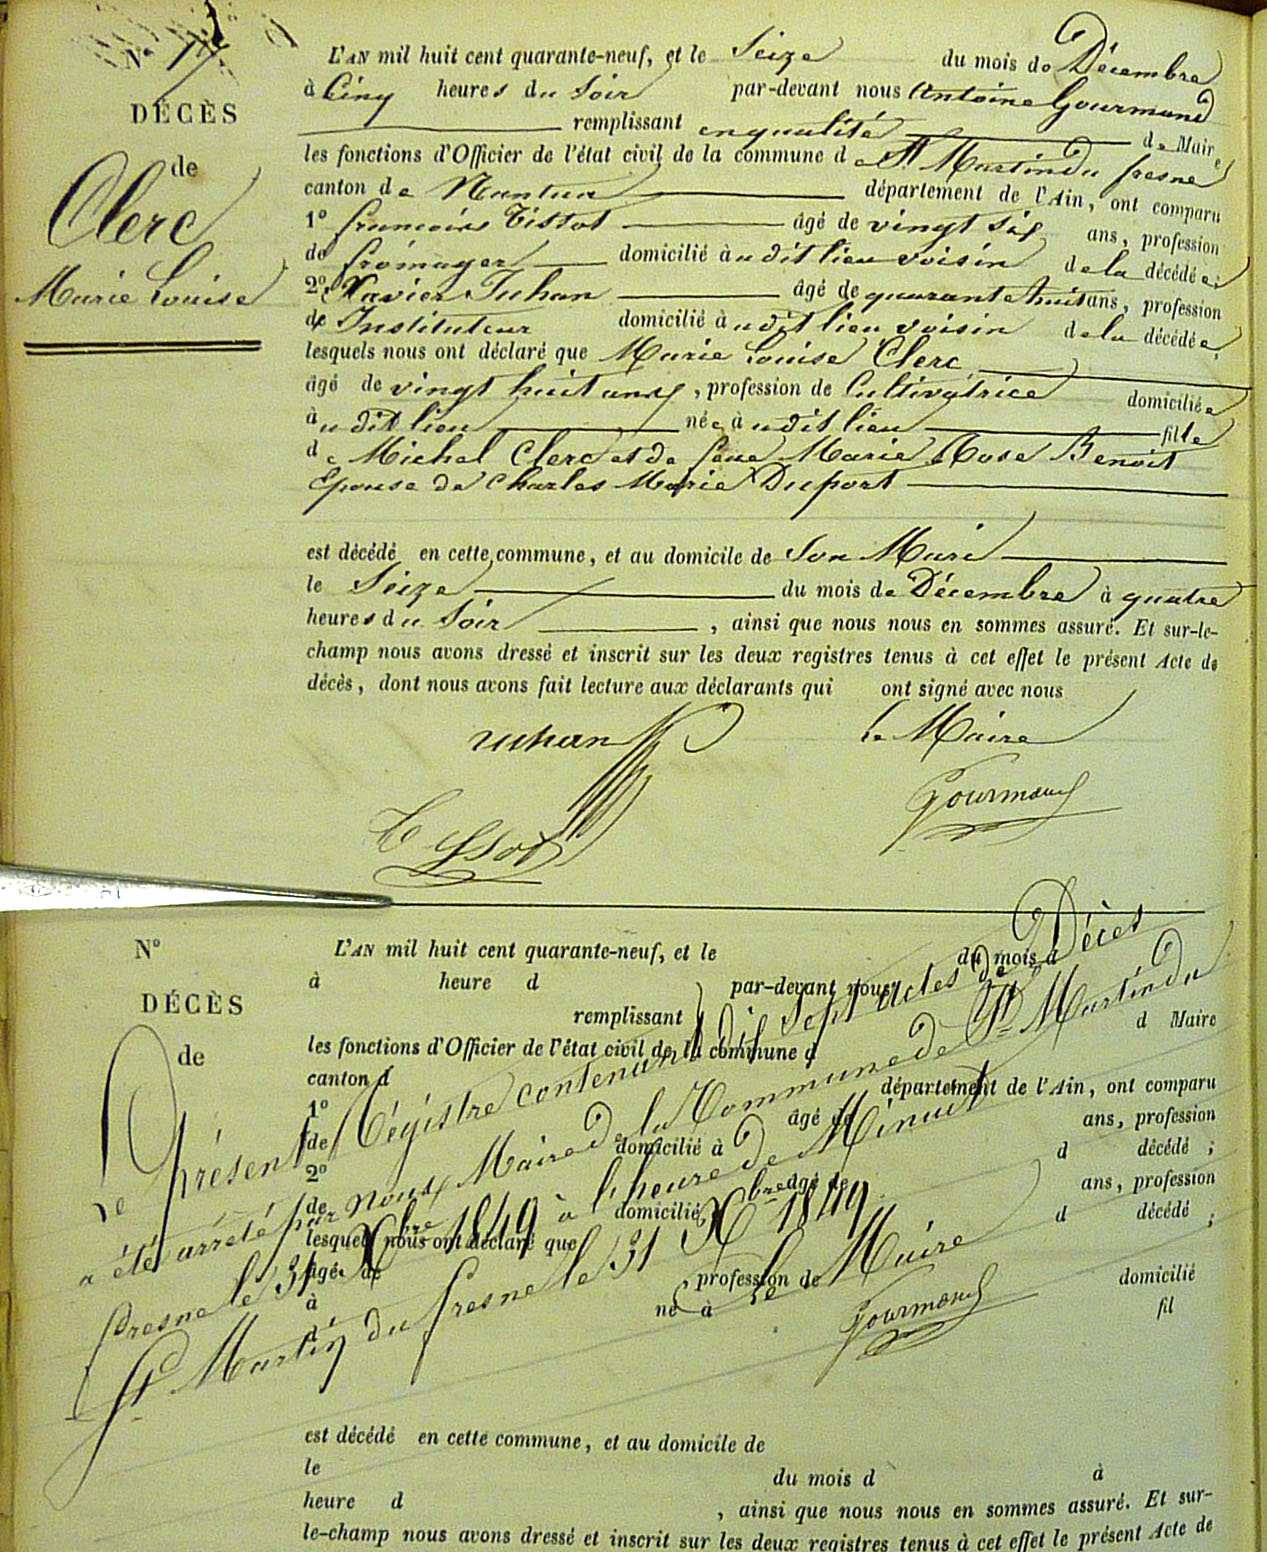 No 17
DÉCÈS
de
Clerc
Marie Louise
L'AN mil huit cent quarante-neuf, et le Seize du mois de Décembre
à Cinq heures du Soir par-devant nous Antoine Gourmand
remplissant en qualité de Maire
les fonctions d'Officier de l'état civil de la commune de St Martin du fresne
canton de Nantua département de l'Ain, ont comparu
1o francois Tissot âgé de vingt six ans, profession
de fromager domicilié à udit lieu voisin de la décédée;
2o Xavier Juhan âgé de quarante huit ans, profession
de Instituteur domicilié à udit lieu voisin de la décédée,
lesquels nous ont déclaré que Marie Louise Clerc
âgé de vingt huit ans, profession de Cultivatrice domiciliée
à udit lieu née à udit lieu fille
de Michel Clerc et de feue Marie Rose Benoit
Epouse de Charles Marie Duport
est décédé en cette commune, et au domicile de Son Mari
le Seize du mois de Décembre à quatre
heures du Soir, ainsi que nous nous en sommes assuré. Et sur-le-
champ nous avons dressé et inscrit sur les deux registres tenus à cet effet le présent Acte de
décès, dont nous avons fait lecture aux déclarants qui ont signé avec nous
Juhan Le Maire
Gourmand
Tissot
No
DÉCÈS
de
L'AN mil huit cent quarante-neuf, et le du mois d
à heure d par-devant nous
remplissant d Maire
les fonctions d'Officier de l'état civil de la commune d
canton d département de l'Ain, ont comparu
1o âgé de ans, profession
de domicilié à d décédé;
2o âgé de ans, profession
de domicilié à d décédé;
lesquels nous ont déclaré que
âgé de, profession de domicilié
à né à fil
d
Le Présent Régistre contenant dix sept actes de Décès
a été arrété par nous Maire de la Commune de St Martin du
fresne le 31 Xbre 1849 à l'heure de Minuit
St Martin du fresne le 31 Xbre 1849
Le Maire
Gourmand
est décédé en cette commune, et au domicile de
le du mois d à
heure d, ainsi que nous nous en sommes assuré. Et sur-
le-champ nous avons dressé et inscrit sur les deux registres tenus à cet effet le présent Acte de